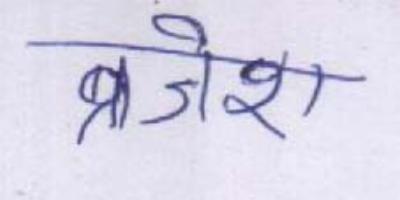 ब्रजेश